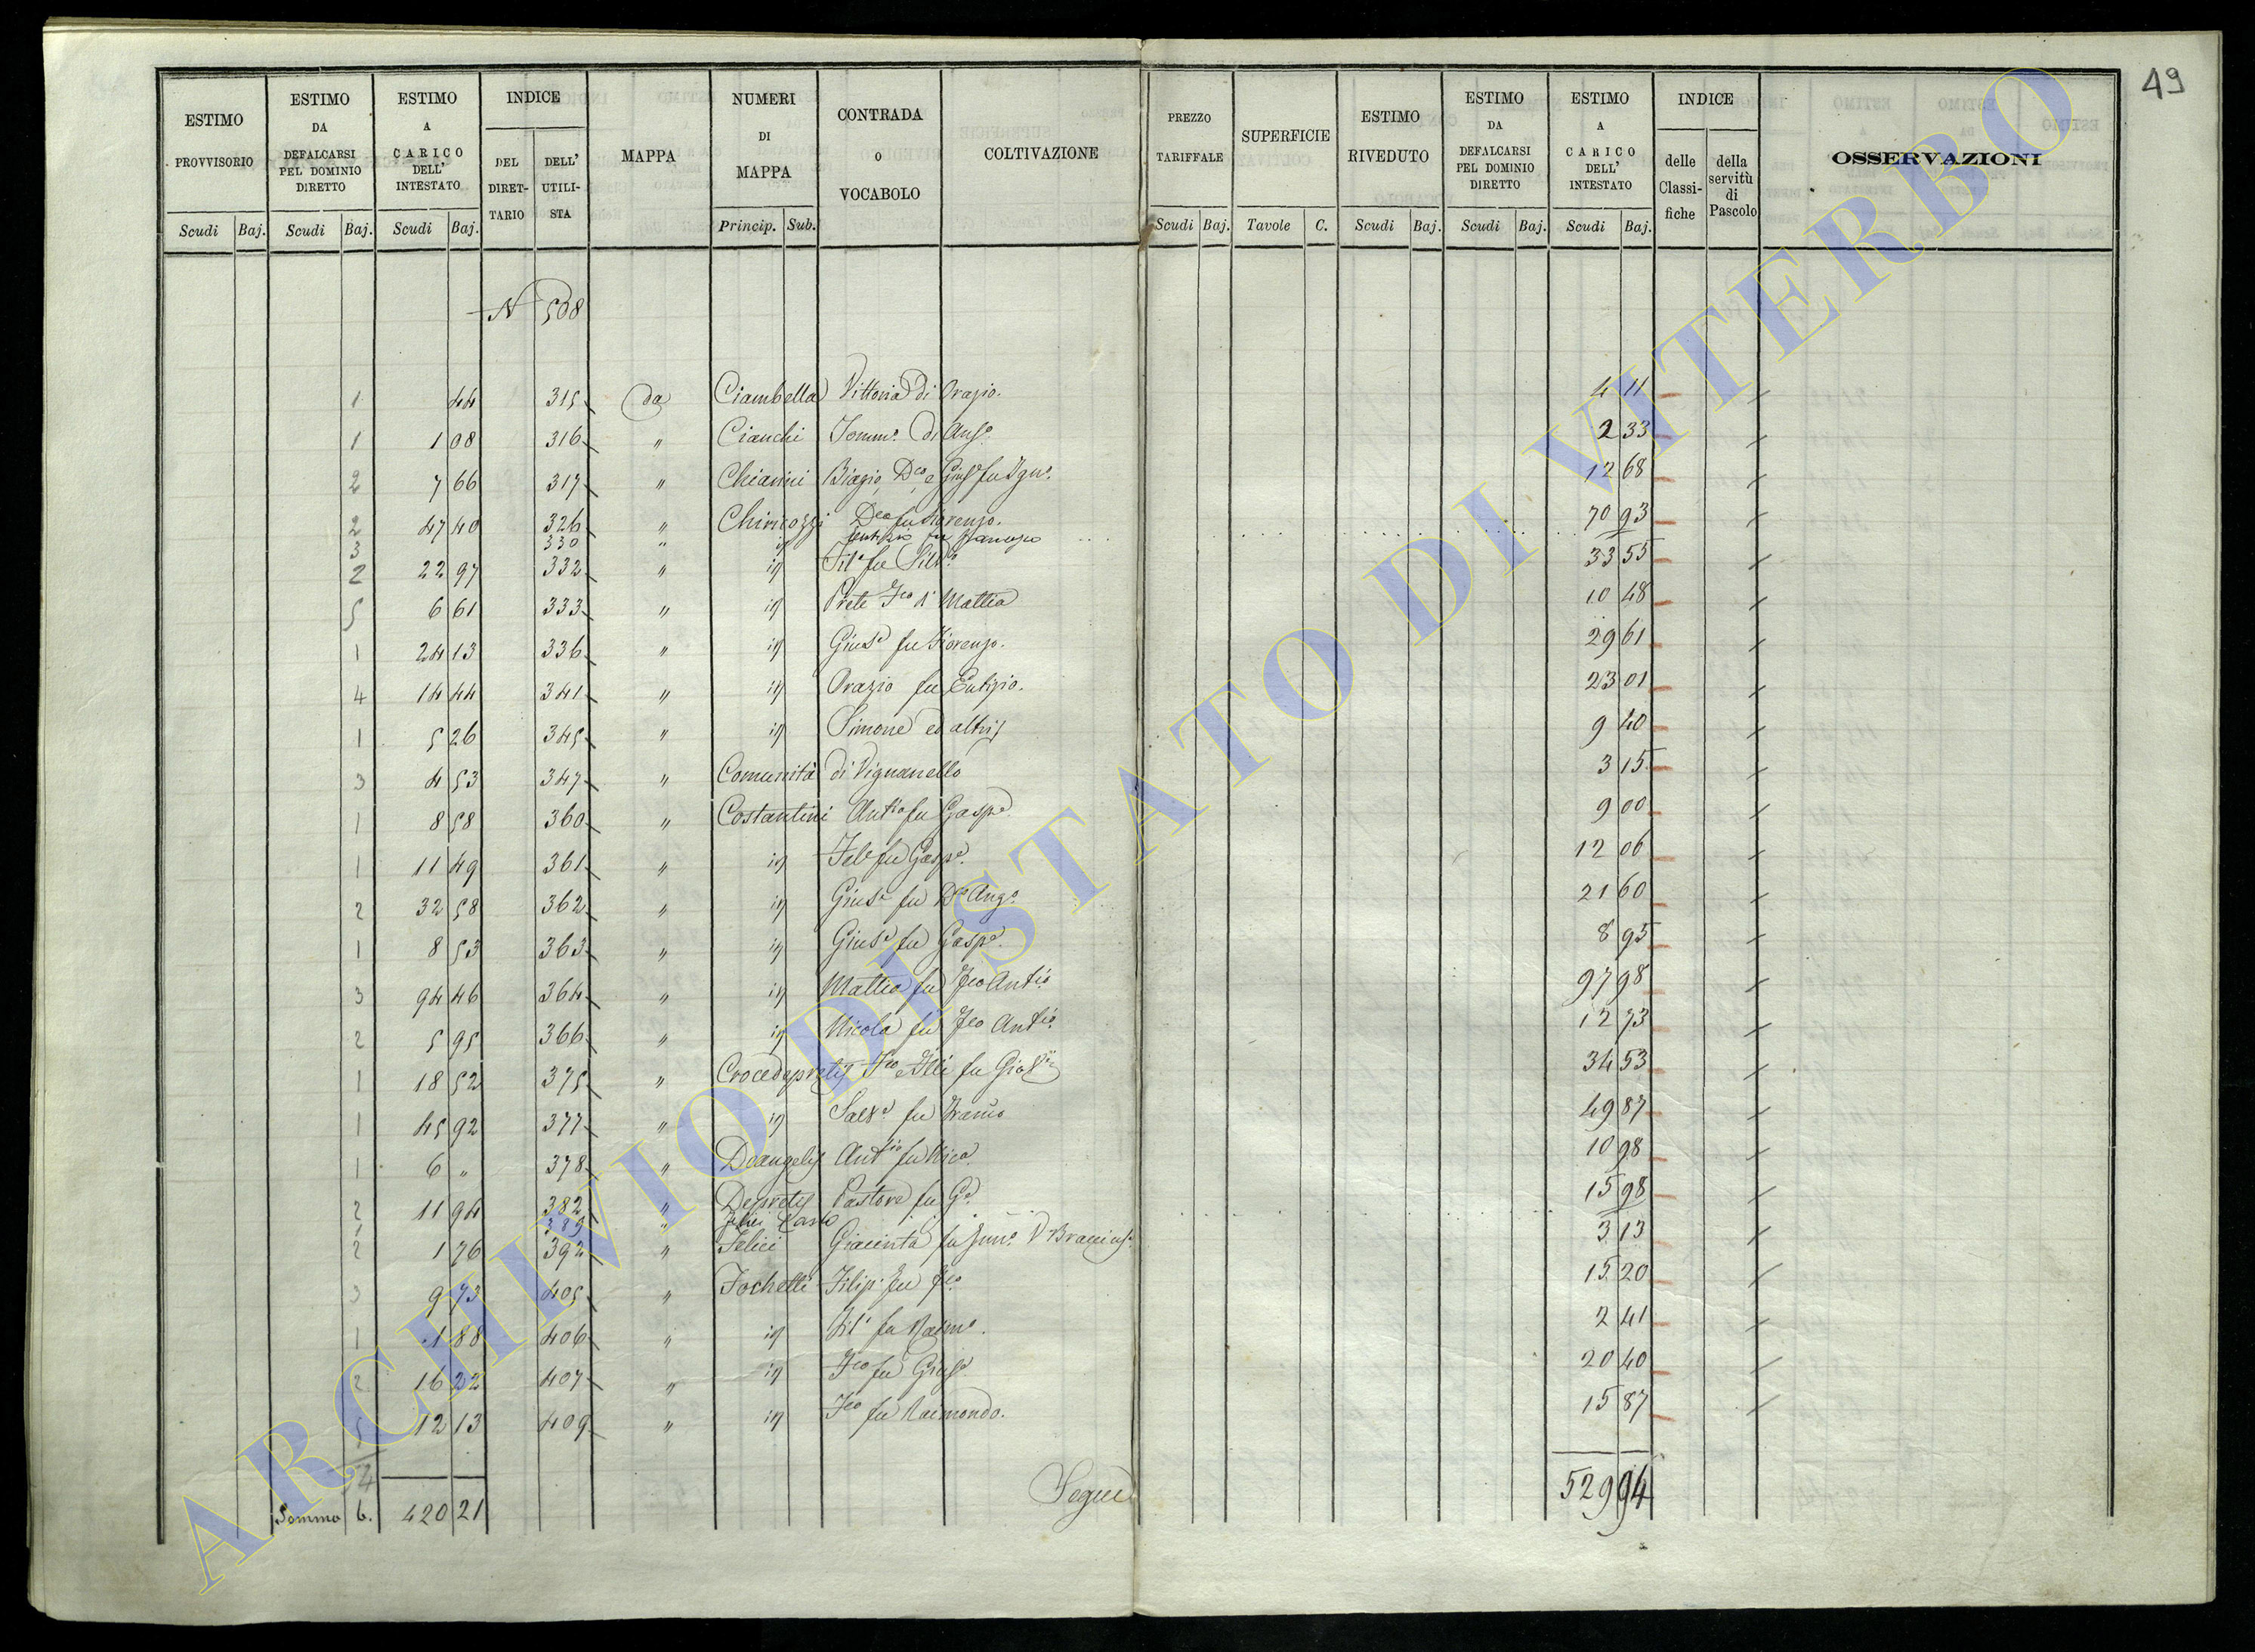 49
ESTIMO PROVVISORIO Scudi Baj.
ESTIMO DA DEFALCARSI PEL DOMINIO DIRETTO Scudi Baj.
ESTIMO A CARICO DELL' INTESTATO Scudi Baj.
INDICE DEL DIRETTARIO DELL' UTILISTA
MAPPA
NUMERI DI MAPPA Princip. Sub.
CONTRADA O VOCABOLO
COLTIVAZIONE
PREZZO TARIFFALE Scudi Baj.
SUPERFICIE Tavole C.
ESTIMO RIVEDUTO Scudi Baj.
ESTIMO DA DEFALCARSI PEL DOMINIO DIRETTO Scudi Baj.
ESTIMO A CARICO DELL' INTESTATO Scudi Baj.
INDICE delle Classifiche della servitù di Pascolo
OSSERVAZIONI
N 508
1 44 315 da Ciambella Vittoria di Orazio. 4 11
1 1 08 316 " Cianchi Tomm.º di Ang.º 2 33
2 7 66 317 " Chiarini Biagio, Dco e Gius.e fu 12 68
2 47 40 326 " Chiricozzi Dco fu Fiorenzo. 70 93
3 330 " id fu
2 22 97 332 " id Fil.e fu Silv.º 33 55
5 6 61 333 " id Prete Fco di Mattia 10 48
1 24 13 336 " id Gius.e fu Fiorenzo. 29 61
4 14 44 341 " id Orazio fu Eutizio. 23 01
1 5 26 345 " id Simone ed altri 9 40
3 4 53 347 " Comunità di Vignanello 3 15
1 8 58 360 " Costantini Ant.io fu Gasp.e 9 00
1 11 49 361 " id Fel.e fu Gasp.e 12 06
2 32 58 362 " id Gius.e fu Ang.º 21 60
1 8 53 363 " id Gius.e fu Gasp.e 8 95
3 94 46 364 " id Mattia fu Fco Ant.io 97 98
2 5 95 366 " id Nicola fu Fco Ant.io 12 73
1 18 52 375 " Crocedepretis Fco e Flli fu 34 53
1 45 92 377 " id Salv.e fu 49 87
1 6 " 378 " Deangelis Ant.io fu Nica 10 98
2 11 94 382 " Depretis Pastore fu 15 98
1 389 " Felici Carlo
2 1 76 392 " Felici Giacinta fu 3 13
3 9 73 405 " Fochetti Filip. fu Fco 15 20
1 1 88 406 " id Fil.e fu 2 41
2 16 22 407 " id Fco fu Gius.e 20 40
5 12 13 409 " id Fco fu Raimondo. 15 87
Segue 529 94
Somma b. 420 21
ARCHIVIO DI STATO DI VITERBO